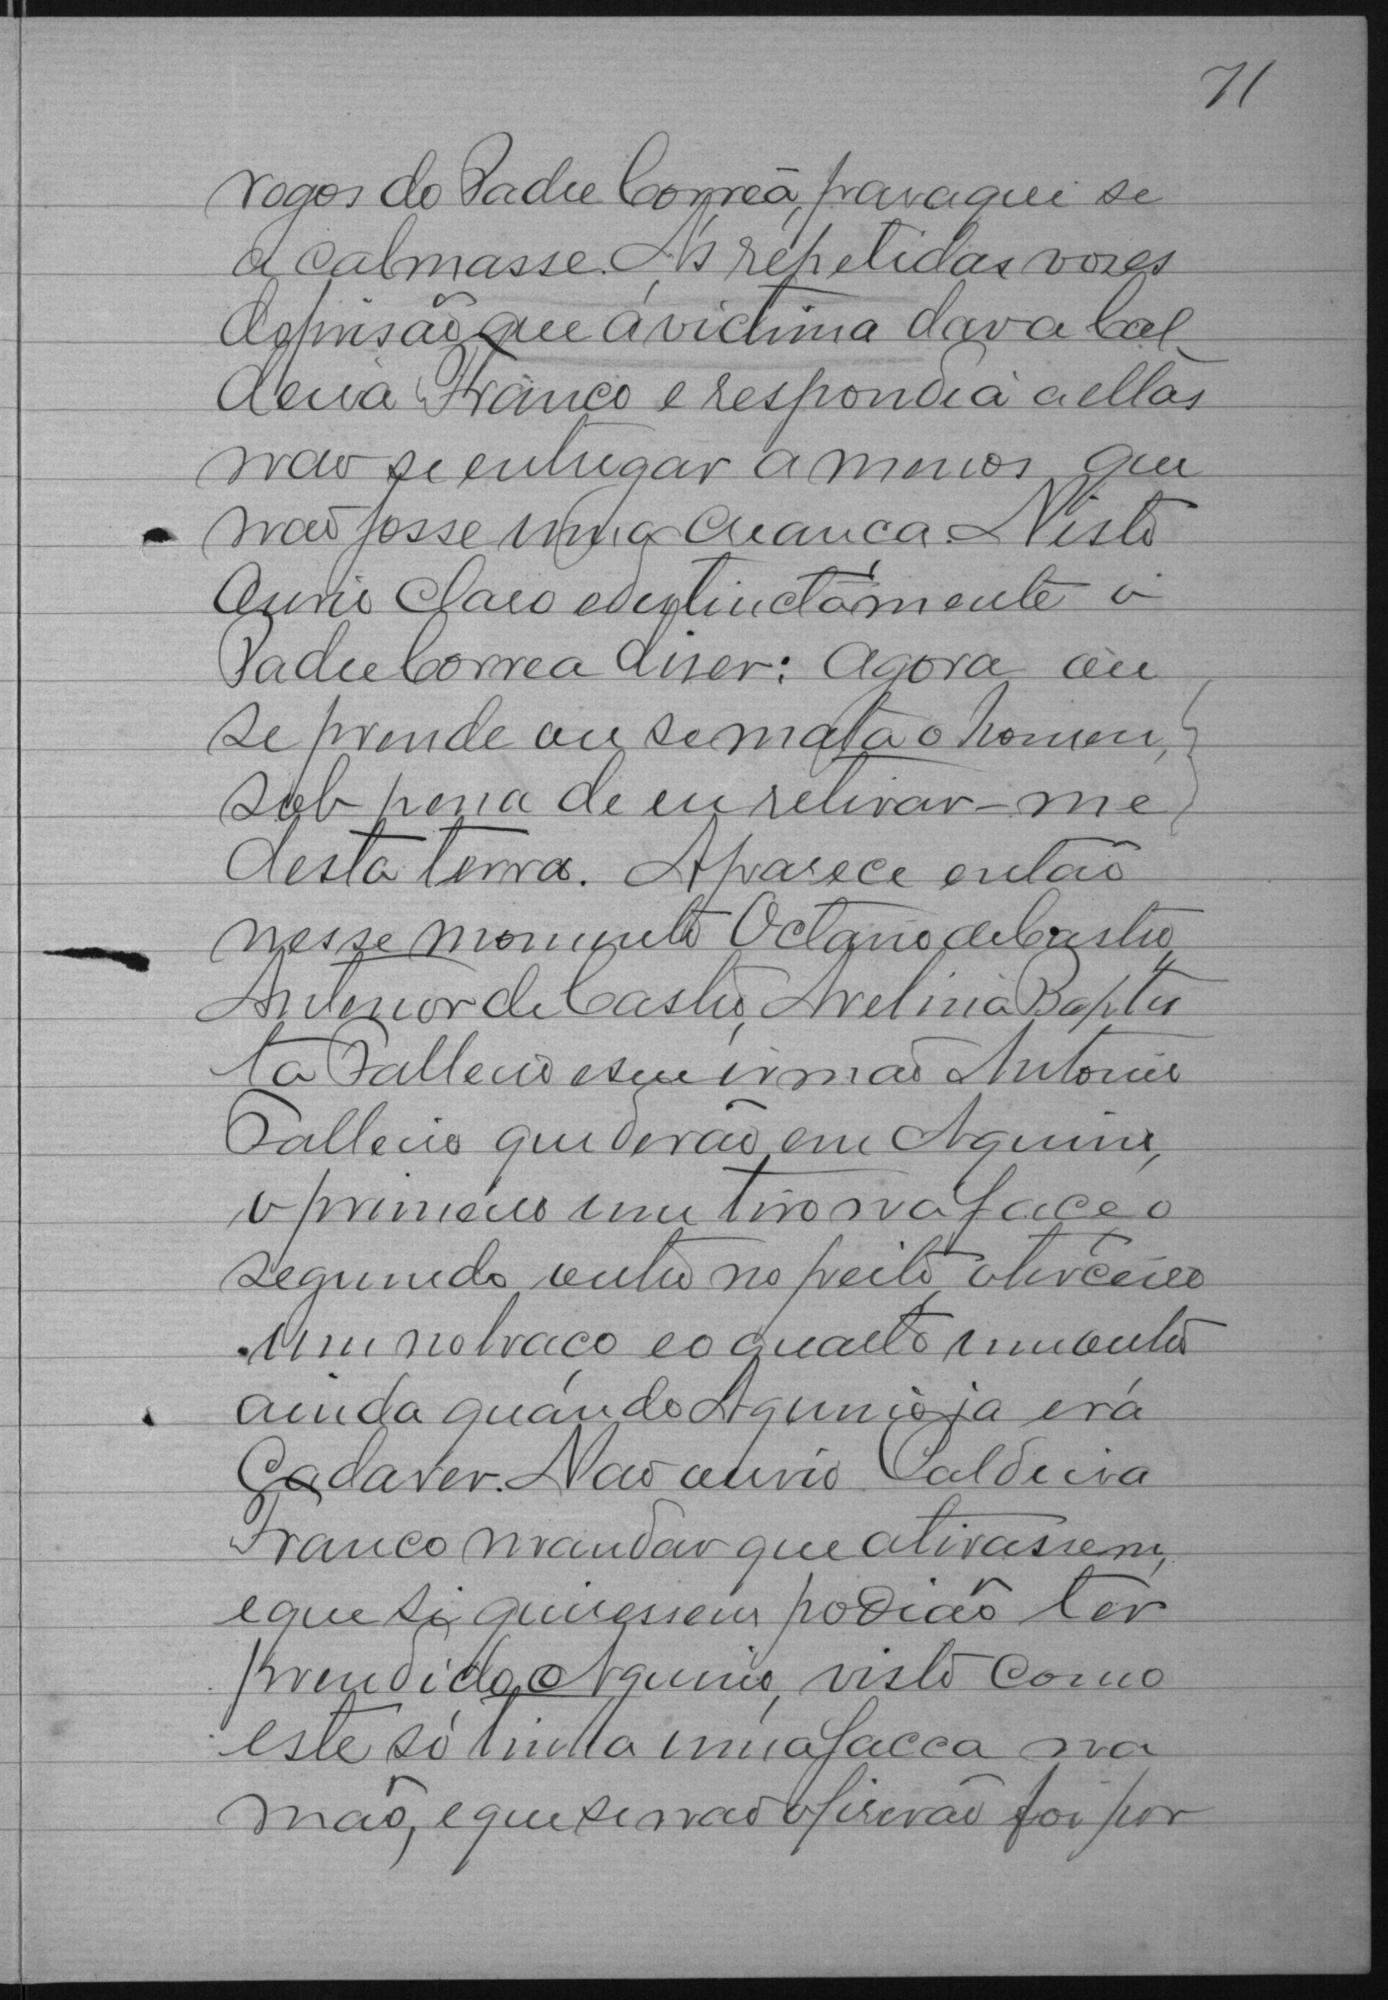 71
rogos do Padre Corrêa, para que se
a calmasse. As repetidas vozes
de prisão que á victima dava Cal
deira Franco e respondia a ellas
não se entregar a menos que
não fosse uma creança. Nisto
ouvio claro e destinctamente o
Padre Correa diser: agora ou
se prende ou se mata o homem,
sob pena de eu retirar-me
desta terra. Aparece então
nesse momento Octavio de Castro,
Antenor de Castro, Avelino Baptis
ta Palleiro e seu irmão Antonio
Palleiro que derão em Aquino,
o primeiro um tiro na face, o
segundo outro no peito, o terceiro
um no braço e o quarto um outro
ainda quando Aquino ja era
Cadaver. Não ouvio Caldeira
Franco mandar que atirassem,
e que si quisessem podião ter
prendido o Aquino, visto como
este só tinha uma facca na
mão, e que se não o fiserão foi por